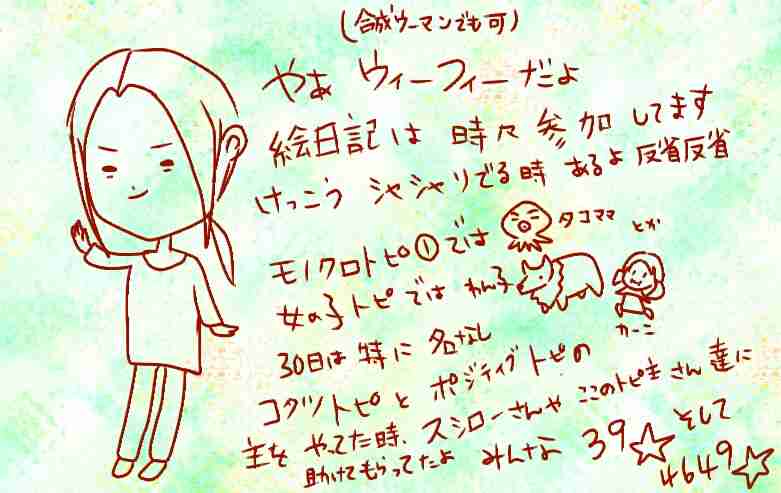 (合成ウーマンでも可)
やぁ ウィーフィーだよ
絵日記は 時々 参加 してます
けっこう シャシャリでる時 あるよ 反省反省
モノクロトピ①では タコママ とか
女の子トピでは わん子 カーニ
30日は 特に 名なし
コタツトピと ポジティブトピの
主を やってた時、スシローさんや ここのトピ主さん達に
助けてもらってたよ みんな 39☆ そして
4649☆